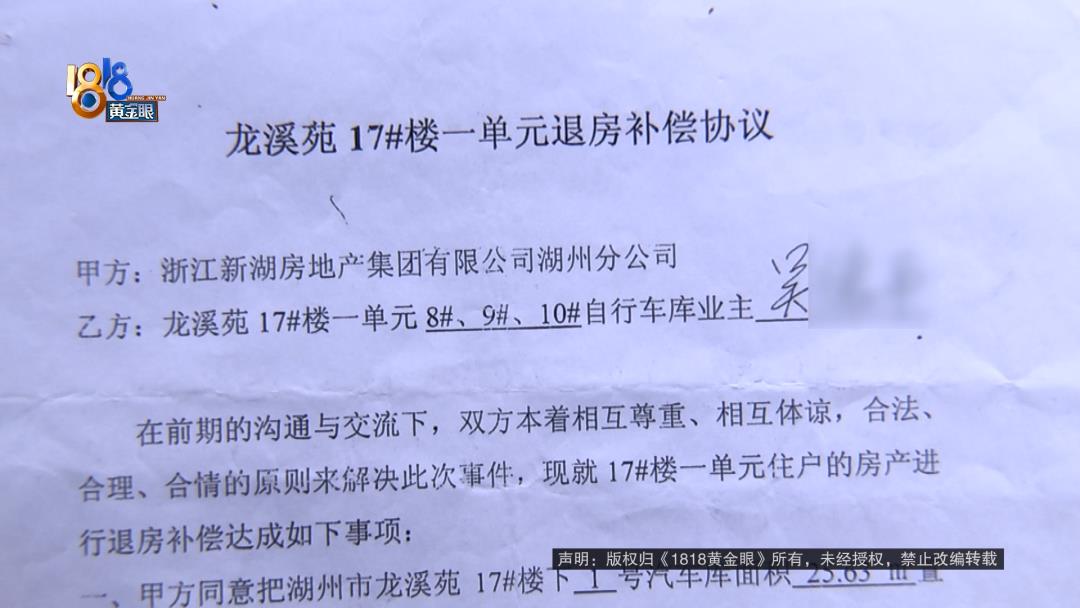 1818
HUANG JIN YAN
黄金眼
龙溪苑 17#楼一单元退房补偿协议
甲方：浙江新湖房地产集团有限公司湖州分公司
乙方：龙溪苑 17#楼一单元 8#、9#、10#自行车库业主 吴
在前期的沟通与交流下，双方本着相互尊重、相互体谅，合法、
合理、合情的原则来解决此次事件，现就 17#楼一单元住户的房产进
行退房补偿达成如下事项：
声明：版权归《1818黄金眼》所有，未经授权，禁止改编转载
一、甲方同意把湖州市龙溪苑 17#楼下 1 号汽车库面积 25.63 ㎡